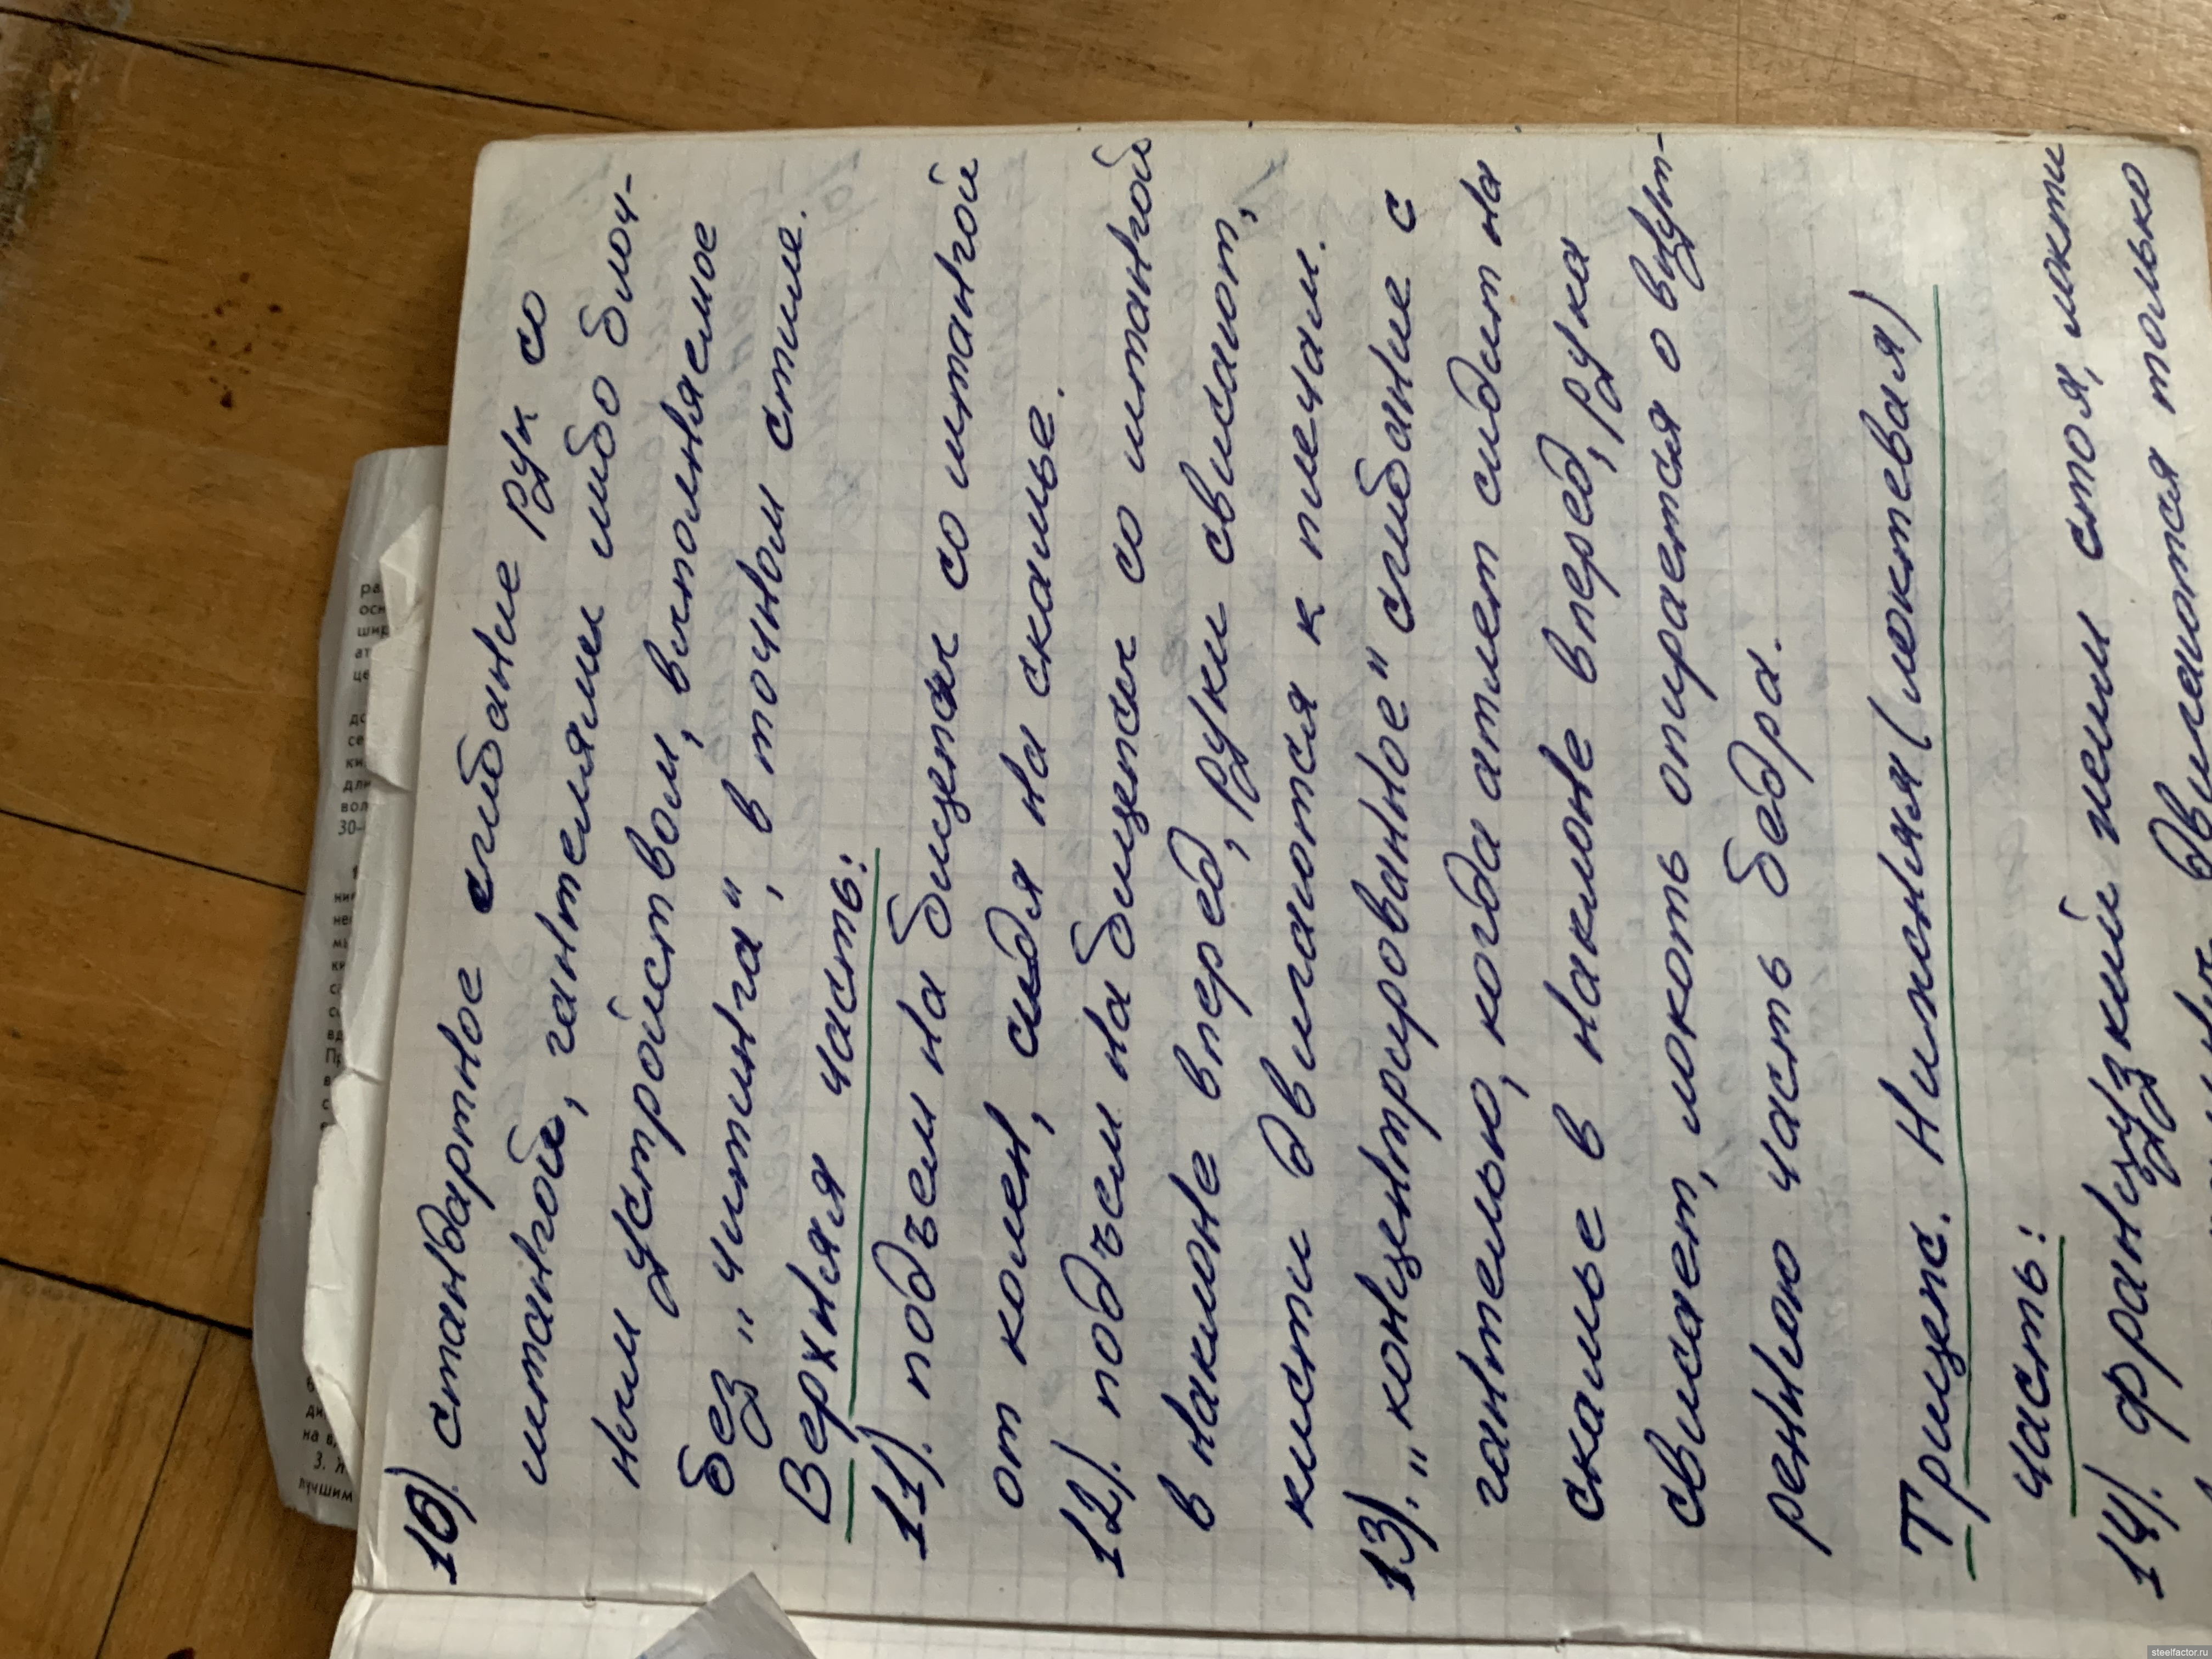 10). стандартное сгибание рук со
штангой, гантелями либо блоч-
ным устройством, выполняемое
без „читинга", в точном стиле.
Верхняя часть:
11). подъем на бицепсы со штангой
от колен, сидя на скамье.
12). подъем на бицепсы со штангой
в наклоне вперед, руки свисают,
кисти двигаются к плечам.
13). „концентрированное" сгибание с
гантелью, когда атлет сидит на
скамье в наклоне вперед, рука
свисает, локоть опирается о внут-
реннюю часть бедра.
Трицепс. Нижняя (локтевая)
часть:
14). французкий жим стоя, локти
двигаются только
ра
осн
шид
ат
це
до
се
ки
дли
вол
30-
ни
не
мь
ки
с
вд
Пр
в
с
ди
на в
3. Я
лучшим
steelfactor.ru